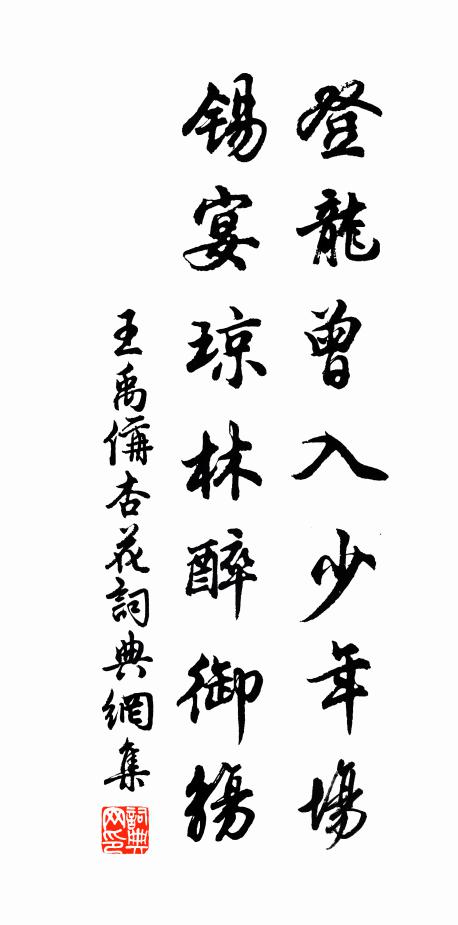 登龍曾入少年場
錫宴琼林醉御觴
王禹偁杏花詞典網集
詞典网印